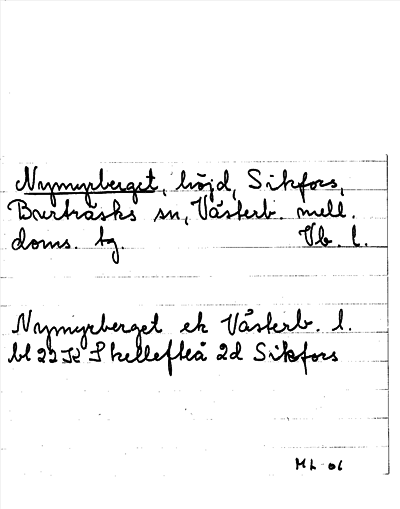 Nymyrberget, höjd, Sikfors,
Burträsks sn, Västerb. mell.
doms. tg. Vb. l.
Nymyrberget ek Västerb. l.
bl 22K Skellefteå 2d Sikfors
ML-06